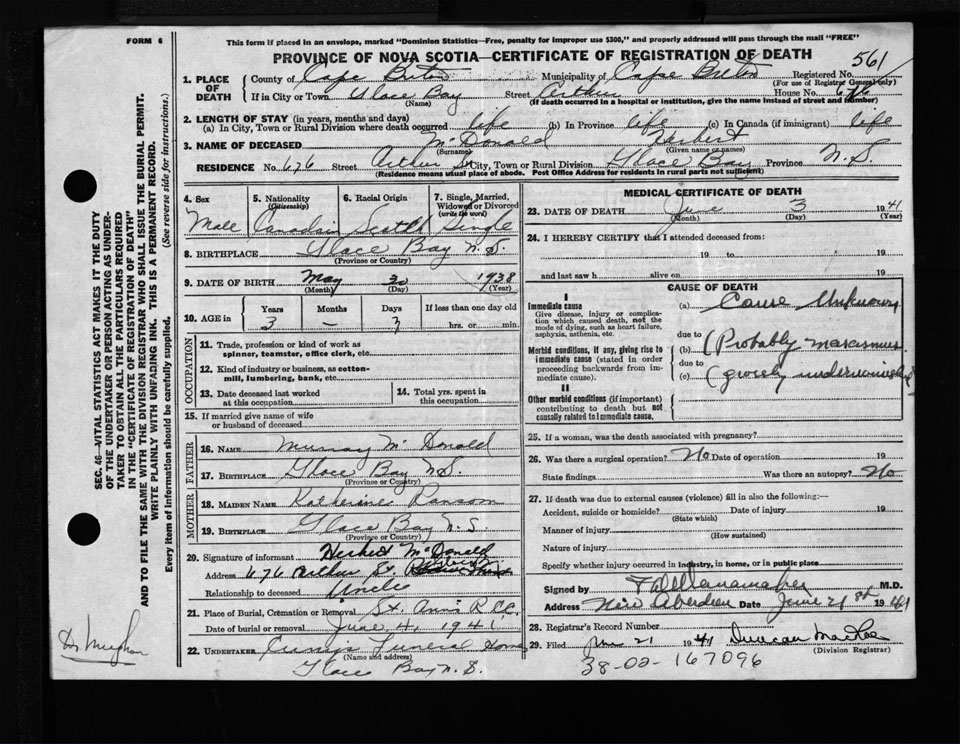 FORM 6
This form if placed in an envelope, marked "Dominion Statistics—Free, penalty for improper use $300," and properly addressed will pass through the mail "FREE"
PROVINCE OF NOVA SCOTIA—CERTIFICATE OF REGISTRATION OF DEATH
561
1. PLACE OF DEATH
County of Cape Breton Municipality of Cape Breton Registered No.
(For use of Registrar General only)
If in City or Town Glace Bay Street Arthur House No. 676
(Name) (If death occurred in a hospital or institution, give the name instead of street and number)
2. LENGTH OF STAY (in years, months and days)
(a) In City, Town or Rural Division where death occurred life (b) In Province life (c) In Canada (if immigrant) life
3. NAME OF DECEASED McDonald Herbert
(Surname) (Given name or names)
RESIDENCE No. 676 Street Arthur St City, Town or Rural Division Glace Bay Province N.S.
(Residence means usual place of abode. Post Office Address for residents in rural parts not sufficient)
4. Sex
Male
5. Nationality
(Citizenship)
Canadian
6. Racial Origin
Scotch
7. Single, Married, Widowed or Divorced
(write the word)
Single
8. BIRTHPLACE Glace Bay N.S.
(Province or Country)
9. DATE OF BIRTH May 30 1938
(Month) (Day) (Year)
10. AGE in
Years Months Days If less than one day old
3 — 3 hrs. or min.
OCCUPATION
11. Trade, profession or kind of work as spinner, teamster, office clerk, etc.
12. Kind of industry or business, as cotton-mill, lumbering, bank, etc.
13. Date deceased last worked at this occupation
14. Total yrs. spent in this occupation
15. If married give name of wife or husband of deceased
FATHER
16. NAME Murray McDonald
17. BIRTHPLACE Glace Bay N.S.
(Province or Country)
MOTHER
18. MAIDEN NAME Katherine Ransom
19. BIRTHPLACE Glace Bay N.S.
(Province or Country)
20. Signature of informant Herbert McDonald
Address 676 Arthur St.
Relationship to deceased Uncle
21. Place of Burial, Cremation or Removal St. Ann's R.C.C.
Date of burial or removal June 4, 1941
22. UNDERTAKER Funeral Home
(Name and address)
Glace Bay N.S.
MEDICAL CERTIFICATE OF DEATH
23. DATE OF DEATH June 3 1941
(Month) (Day) (Year)
24. I HEREBY CERTIFY that I attended deceased from:
19 to 19
and last saw h alive on 19
CAUSE OF DEATH
I
Immediate cause
Give disease, injury or complication which caused death, not the mode of dying, such as heart failure, asphyxia, asthenia, etc.
(a) Cause Unknown
due to
Morbid conditions, if any, giving rise to immediate cause (stated in order proceeding backwards from immediate cause).
(b) (Probably marasmus
due to
(c) (grossly undernourished)
II
Other morbid conditions (if important) contributing to death but not causally related to immediate cause.
25. If a woman, was the death associated with pregnancy?
26. Was there a surgical operation? No Date of operation 19
State findings Was there an autopsy? No
27. If death was due to external causes (violence) fill in also the following:—
Accident, suicide or homicide? Date of injury 19
(State which)
Manner of injury
(How sustained)
Nature of injury
Specify whether injury occurred in industry, in home, or in public place
Signed by M.D.
Address New Aberdeen Date June 21st 1941
28. Registrar's Record Number
29. Filed June 21 1941 Duncan MacRae
(Division Registrar)
38-02-167096
SEC. 46—VITAL STATISTICS ACT MAKES IT THE DUTY OF THE UNDERTAKER OR PERSON ACTING AS UNDERTAKER TO OBTAIN ALL THE PARTICULARS REQUIRED IN THE "CERTIFICATE OF REGISTRATION OF DEATH" AND TO FILE THE SAME WITH THE DIVISION REGISTRAR WHO SHALL ISSUE THE BURIAL PERMIT.
WRITE PLAINLY WITH UNFADING INK. THIS IS A PERMANENT RECORD.
Every item of information should be carefully supplied. (See reverse side for instructions.)